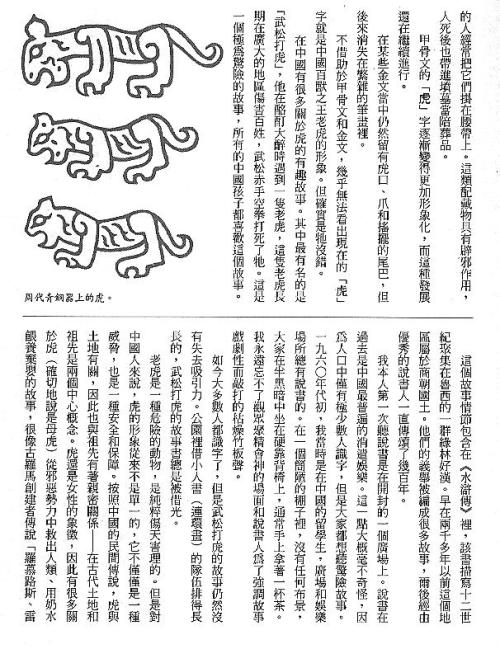 的人經常把它們掛在腰帶上。這類配戴物具有辟邪作用，
人死後也帶進墳墓當陪葬品。
甲骨文的「虎」字逐漸變得更加形象化，而這種發展
還在繼續進行。
在某些金文當中仍然留有虎口、爪和搖擺的尾巴，但
後來消失在繁雜的筆畫裡。
不借助於甲骨文和金文，幾乎無法看出現在的「虎」
字就是中國百獸之王老虎的形象。但確實是牠沒錯。
在中國有很多關於虎的有趣故事。其中最有名的是
「武松打虎」，他在酩酊大醉時遇到一隻老虎，這隻老虎長
期在廣大的地區傷害百姓，武松赤手空拳打死了牠。這是
一個極為驚險的故事，所有的中國孩子都喜歡這個故事。
周代青銅器上的虎。
這個故事情節包含在《水滸傳》裡，該書描寫十二世
紀聚集在魯西的一群綠林好漢。早在兩千多年以前這個地
區屬於商朝國土。他們的義舉被編成很多故事，爾後經由
優秀的說書人一直傳頌了幾百年。
我本人第一次聽說書是在開封的一個廣場上。說書在
過去是中國最普遍的消遣娛樂。這一點大概毫不奇怪，因
為人口中僅有極少數人識字，但是大家都想聽驚險故事。
一九六〇年代初，我當時是在中國的留學生，廣場和娛樂
場所總有說書的。在一個簡陋的棚子裡，沒有任何布景，
大家在半黑暗中坐在硬靠背椅上，通常手上拿著一杯茶。
我永遠忘不了觀眾聚精會神的場面和說書人為了強調故事
戲劇性而敲打的枯燥竹板聲。
如今大多數人都識字了，但是武松打虎的故事仍然沒
有失去吸引力。公園裡借小人書（連環畫）的隊伍排得長
長的，武松打虎的故事書總是被借光。
老虎是一種危險的動物，是純粹傷天害理的。但是對
中國人來說，虎的形象從來不是單一的，它不僅僅是一種
威脅，也是一種安全和保障。按照中國的民間傳說，虎與
土地有關，因此也與祖先有著親密關係——在古代土地和
祖先是兩個中心概念。虎還是女性的象徵，因此有很多關
於虎（確切地說是母虎）從邪惡勢力中救出人類、用奶水
餵養棄嬰的故事，很像古羅馬創建者傳說「羅慕路斯、雷